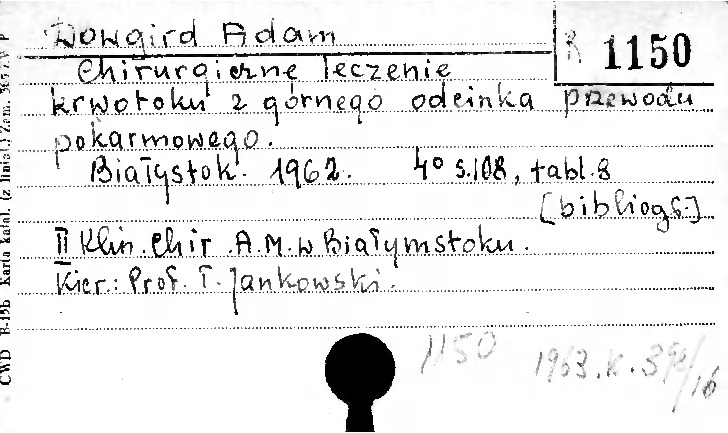 Dowgird Adam
R 1150
Chirurgiczne leczenie
krwotoku z górnego odcinka przewodu
pokarmowego.
Białystok. 1962. 4° s.108, tabl.8
[bibliogr.]
II Klin. Chir. A.M. w Białymstoku.
Kier.: Prof. T. Jankowski.
1150 1963.K.
CWD B-15b Karta katal. (z liniat.) Zam.